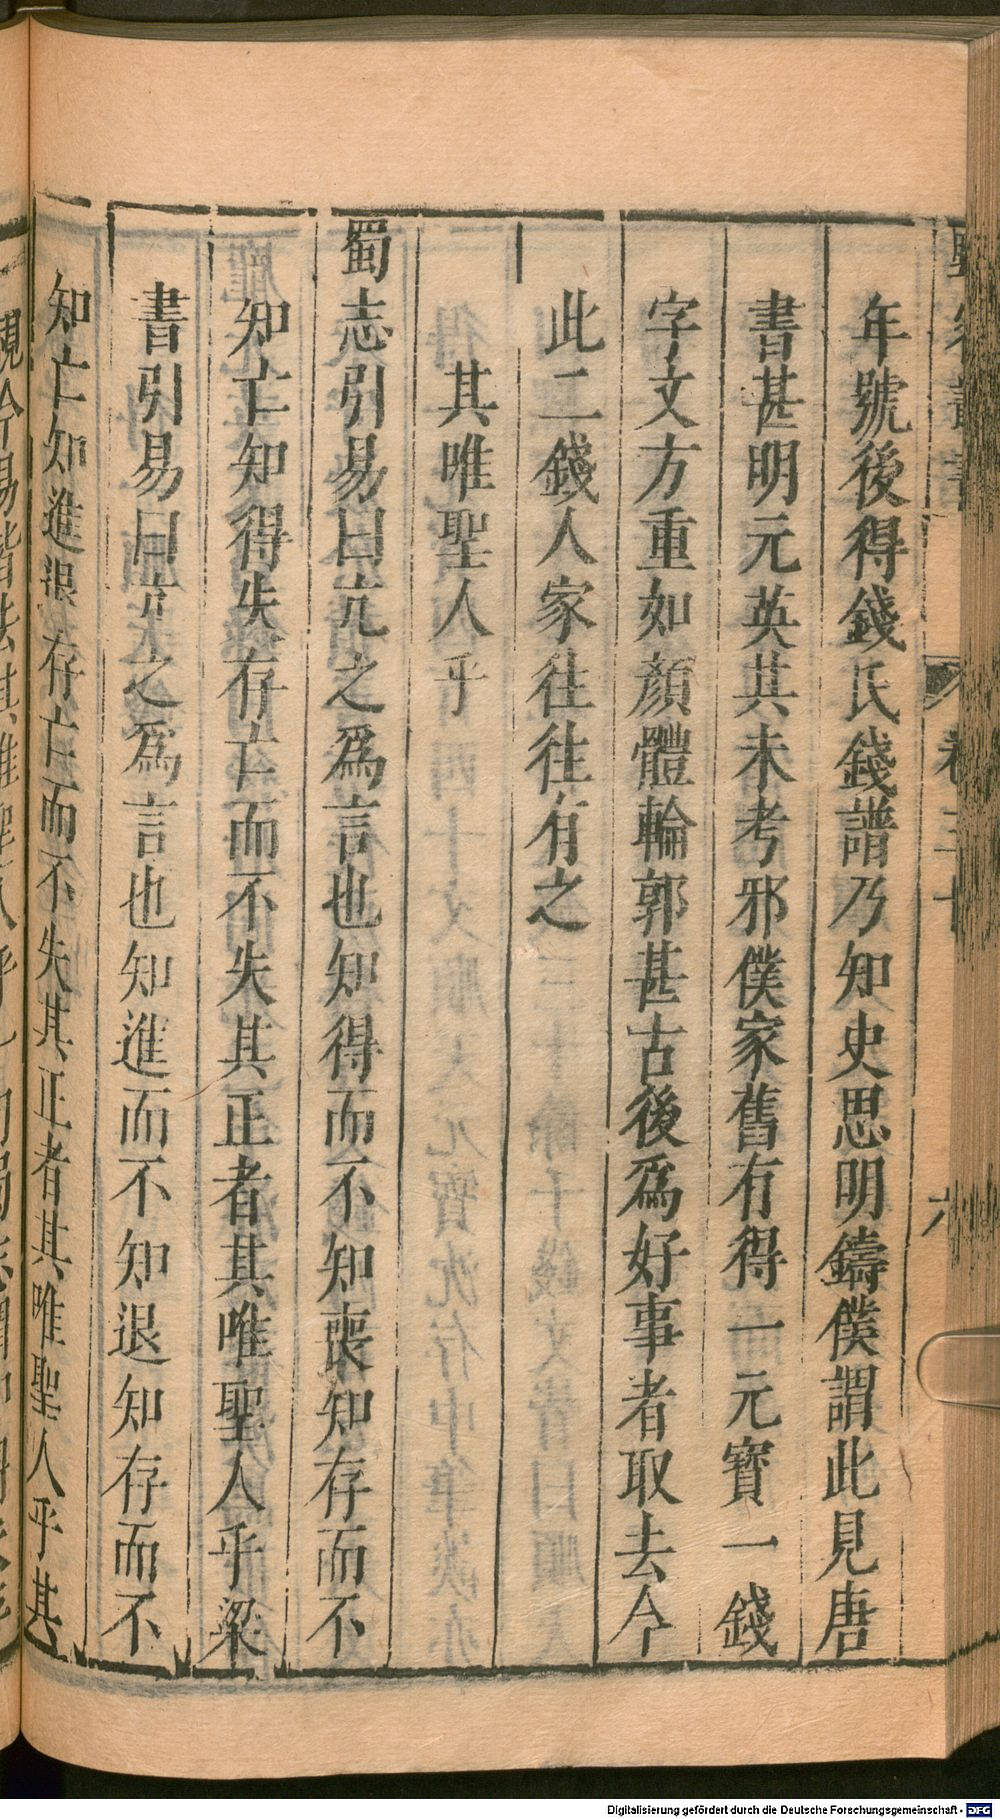 年號後得錢氏錢譜乃知史思明鑄僕謂此見唐
書甚明元英其未考邪僕家舊有得一元寶一錢
字文方重如顏體輪郭甚古後爲好事者取去今
此二錢人家往往有之
其唯聖人乎
蜀志引易曰亢之爲言也知得而不知喪知存而不
知亡知得失存亡而不失其正者其唯聖人乎梁
書引易曰亢之爲言也知進而不知退知存而不
知亡知進退存亡而不失其正者其唯聖人乎其
Digitalisierung gefördert durch die Deutsche Forschungsgemeinschaft - DFG